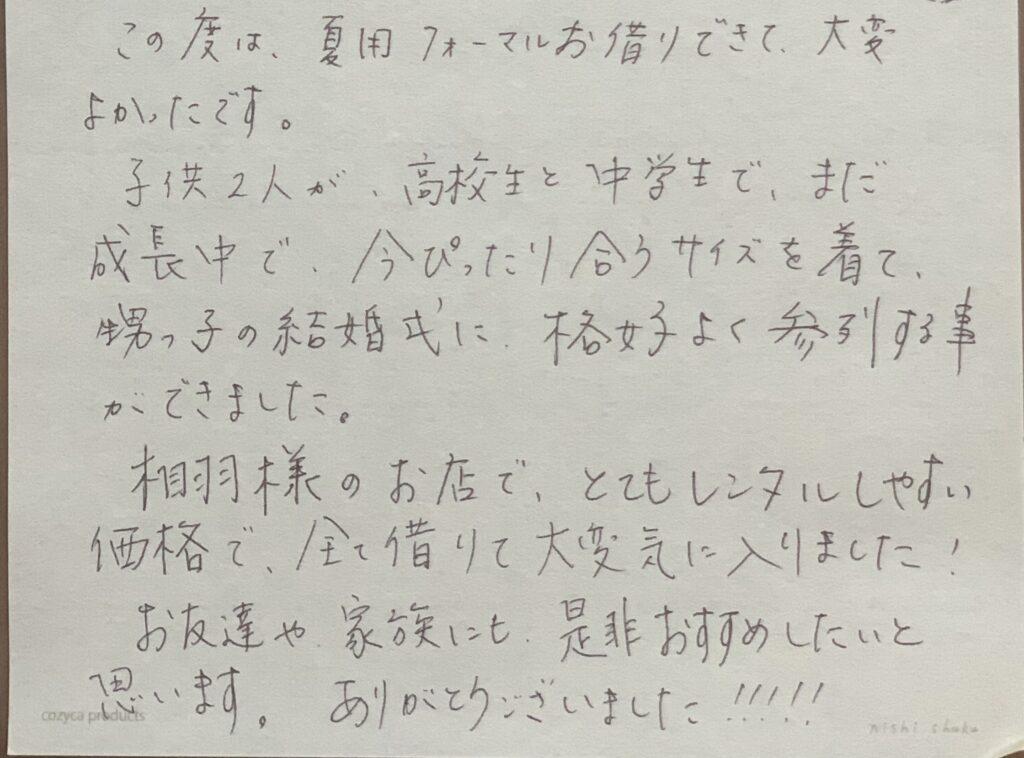 この度は、夏用フォーマルお借りできて、大変
よかったです。
子供2人が、高校生と中学生で、まだ
成長中で、今ぴったり合うサイズを着て、
甥っ子の結婚式に、格好よく参列する事
ができました。
相羽様のお店で、とてもレンタルしやすい
価格で、全て借りて大変気に入りました!
お友達や、家族にも、是非おすすめしたいと
思います。ありがとうございました!!!!!
cozyca products
nishi shuku